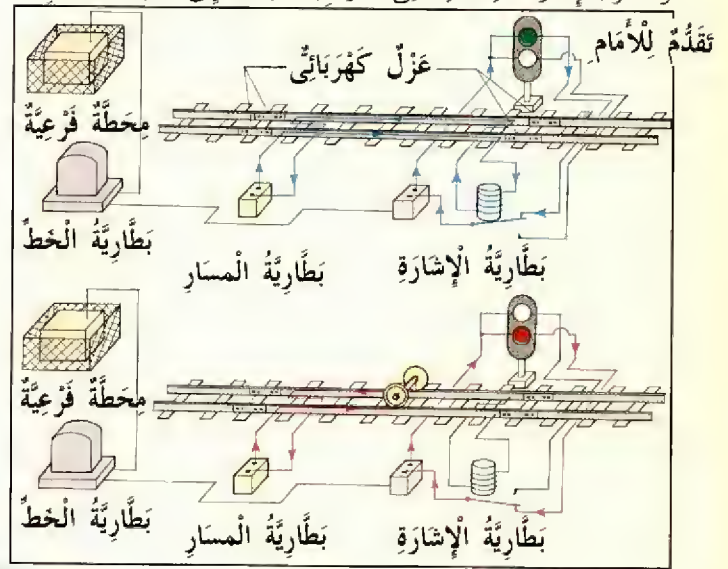 تَقَدُّمٌ لِلْأَمَامِ
عَزْلٌ كَهْرَبَائِيٌّ
مِحَطَّةٌ فَرْعِيَّةٌ
بَطَّارِيَّةُ الْخَطِّ
بَطَّارِيَّةُ الْمسَارِ
بَطَّارِيَّةُ الْإِشَارَةِ
مِحَطَّةٌ فَرْعِيَّةٌ
بَطَّارِيَّةُ الْخَطِّ
بَطَّارِيَّةُ الْمسَارِ
بَطَّارِيَّةُ الْإِشَارَةِ